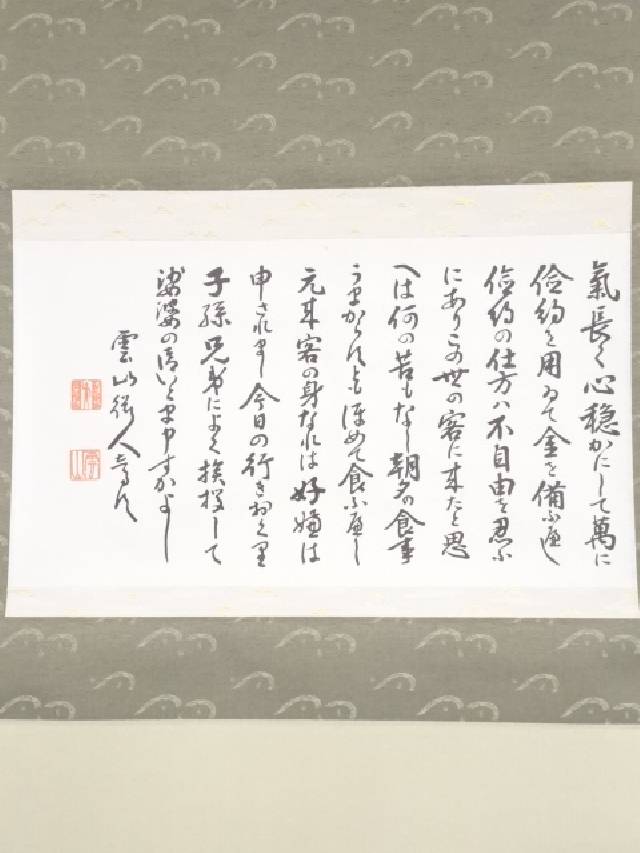 氣長く心穏かにして萬に
儉約を用ゐて金を備ふ遍し
儉約の仕方ハ不自由を忍ふ
にありこの世の客に耒たと思
へは何の苦もなし朝夕の食事
うまからすともほめて食ふ遍し
元耒客の身なれは好嫌は
申されまし今日の行きおくり
子孫兄弟によく挨拶して
娑婆の御いとま申すかよし
雲山